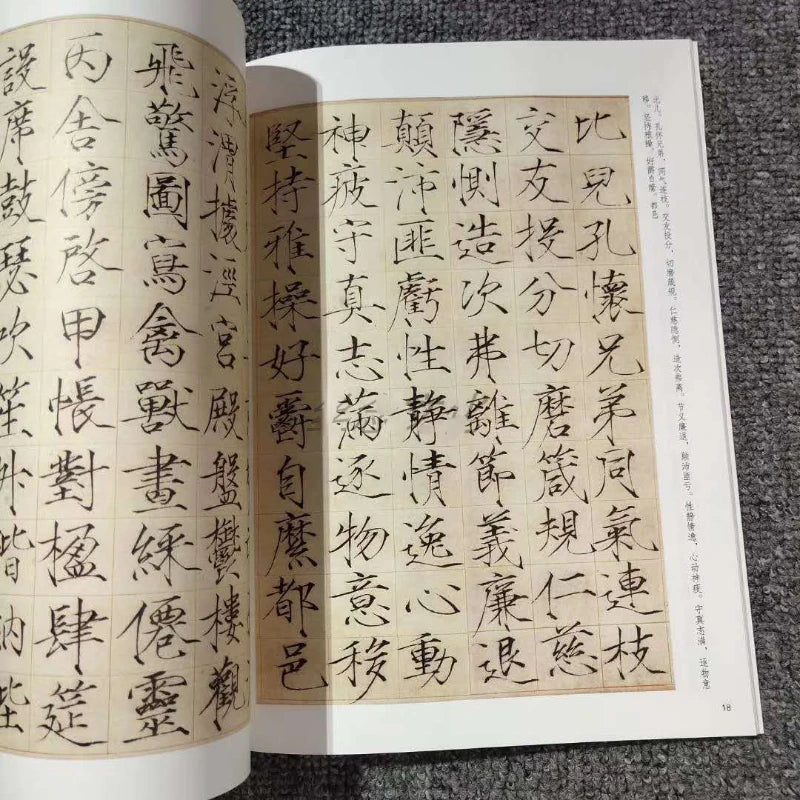 比儿。孔怀兄弟，同气连枝。交友投分，切磨箴规。仁慈隐恻，造次弗离。节义廉退，颠沛匪亏。性静情逸，心动神疲。守真志满，逐物意
移。坚持雅操，好爵自縻。都邑
比兒孔懷兄弟同氣連枝
交友投分切磨箴規仁慈
隱惻造次弗離節義廉退
顛沛匪虧性靜情逸心動
神疲守真志滿逐物意移
堅持雅操好爵自縻都邑
18
浮渭據涇宮殿盤鬱樓觀
飛驚圖寫禽獸畫綵僊靈
丙舍傍啓甲帳對楹肆筵
設席鼓瑟吹笙升階納陛